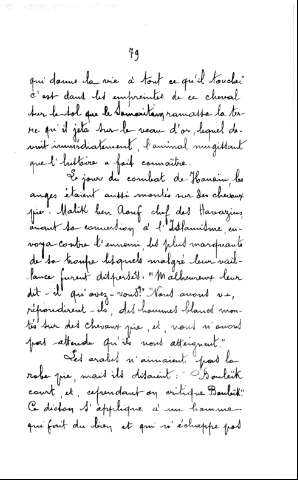 79
qui donne la vie à tout ce qu'il touche"
c'est dans les empreintes de ce cheval
sur le sol que le Samaritain ramassa la ter-
re qu'il jeta sur le veau d'or, lequel de-
vint immédiatement, l'animal mugissant
que l'histoire a fait connaître.
Le jour du combat de Honaïn les
anges étaient aussi montés sur des chevaux
pie. Malik ben Aouf chef des Hawazins
avant sa conversion à l'Islamisme, en-
voya contre l'ennemi les plus marquants
de sa troupe lesquels malgré leur vail-
lance furent dispersés. "Malheureux leur
dit-il qu'avez-vous?" "Nous avons vu,
répondirent-ils, des hommes blancs mon-
tés sur des chevaux pie, et nous n'avons
pas attendu qu'ils nous atteignent."
Les arabes n'aimaient pas la
robe pie, mais ils disaient: "Bouleïk
court, et, cependant on critique Bouleïk"
Ce dicton s'applique à un homme
qui fait du bien et qui n'échappe pas